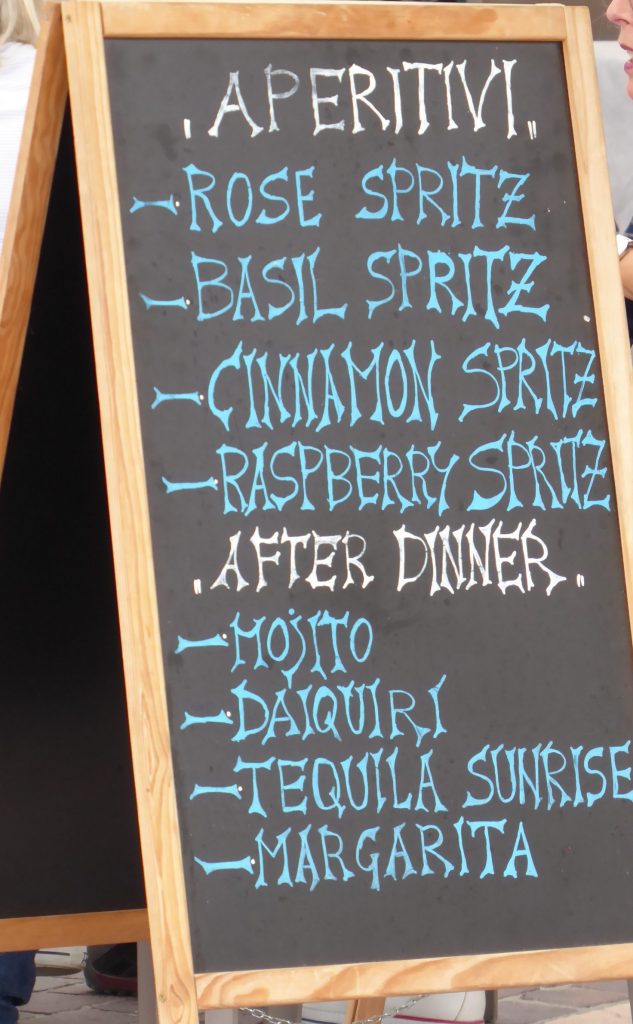 "APERITIVI"
- ROSE SPRITZ
- BASIL SPRITZ
- CINNAMON SPRITZ
- RASPBERRY SPRITZ
"AFTER DINNER"
- MOJITO
- DAIQUIRI
- TEQUILA SUNRISE
- MARGARITA